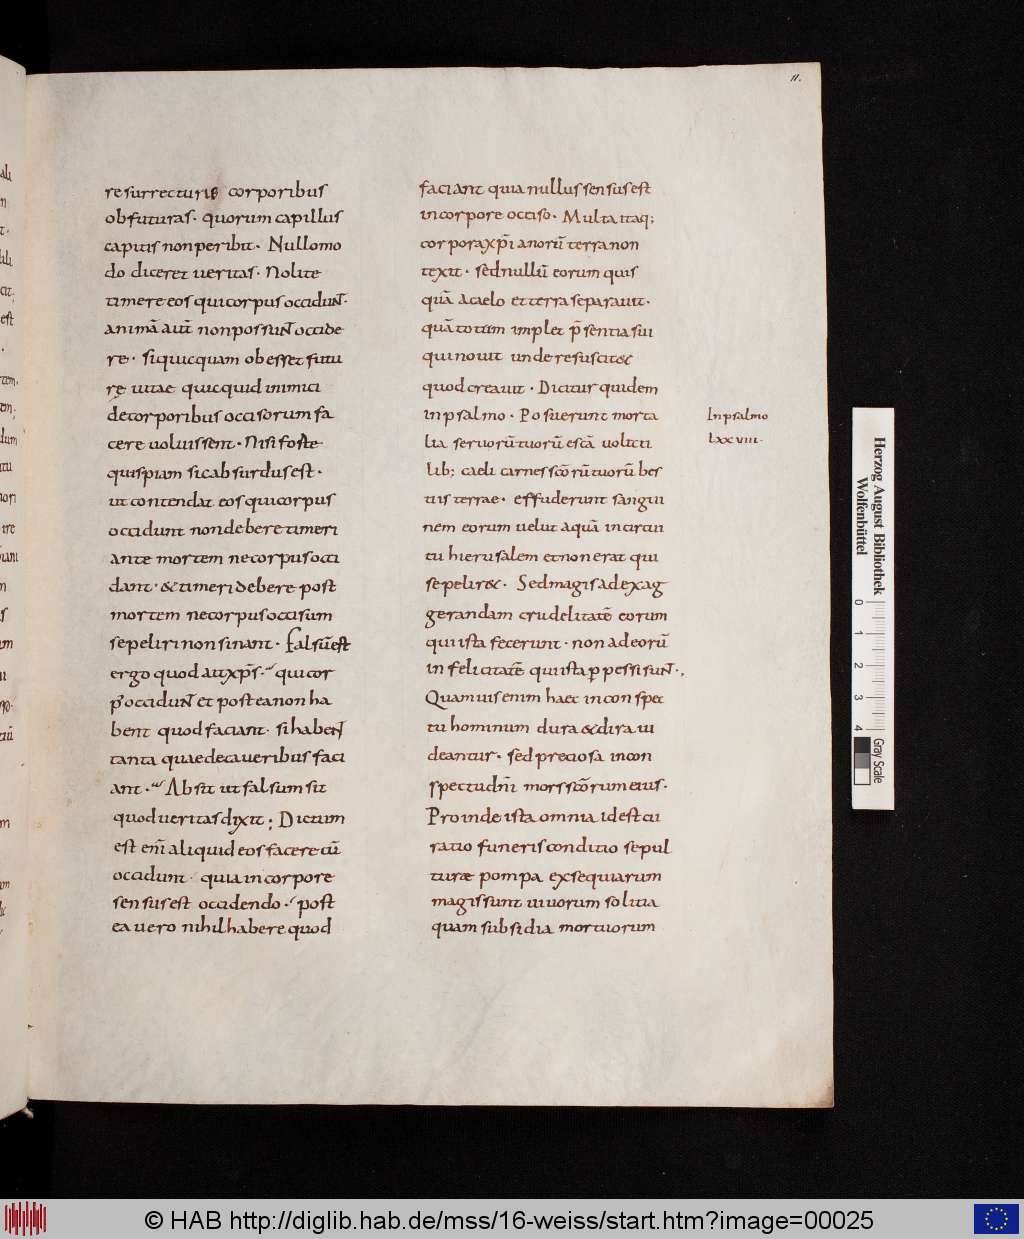 11.
resurrecturis corporibus
obfuturas· quorum capillus
capitis non peribit· Nullo mo
do diceret ueritas· Nolite
timere eos qui corpus occidunt·
animā aut̄ non possunt occide
re· si quicquam obesset futu
rę uitae quicquid inimici
de corporibus occisorum fa
cere uoluissent· Nisi foste
quispiam sic absurdus est·
ut contendat eos qui corpus
occidunt non debere timeri
ante mortem ne corpus occi
dant· & timeri debere post
mortem ne corpus occisum
sepeliri non sinant· Falsū est
ergo quod ait xp̄s· qui cor
p' occidunt et postea non ha
bent quod faciant· si habent
tanta quae de cadaueribus faci
ant· Absit ut falsum sit
quod ueritas dixit; Dictum
est eni̅ aliquid eos facere cū
occidunt· quia in corpore
sensus est occidendo· post
ea uero nihil habere quod
faciant quia nullus sensus est
in corpore occiso· Multa itaq;
corpora xp̄ianorū terra non
texit· sed nullū eorum quis
quā a caelo et terra separauit·
quā totum implet p̄sentia sui
qui nouit unde resuscit&
quod creauit· Dicitur quidem
in psalmo· Posuerunt morta
lia seruorū tuorū escā uolati
lib; caeli carnes sc̄orū tuorū bes
tiis terrae· effuderunt sangui
nem eorum uelut aquā in circui
tu hierusalem et non erat qui
sepelir&· Sed magis ad exag
gerandam crudelitatē eorum
qui ista fecerunt· non ad eorū
infelicitatē qui ista ꝑpessi sunt·,
Quamuis enim haec in conspec
tu hominum dura & dira ui
deantur· sed preciosa in con
spectu dn̄i mors sc̄orum eius·
Proinde ista omnia id est cu
ratio funeris conditio sepul
turæ pompa exsequiarum
magis sunt uiuorum solitia
quam subsidia mortuorum
In psalmo
lxxviii·
Herzog August Bibliothek
Wolfenbüttel
0 1 2 3 4
Gray Scale
© HAB http://diglib.hab.de/mss/16-weiss/start.htm?image=00025